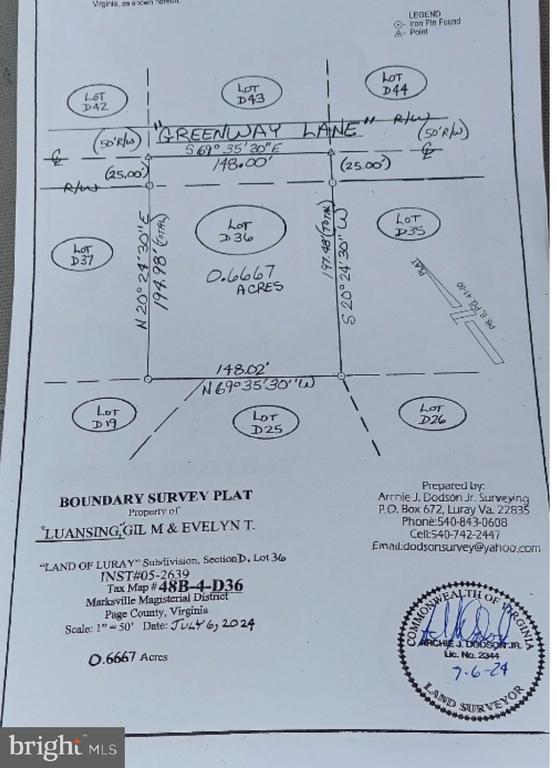 Virginia, as shown hereon.
LEGEND
Iron Pin Found
Point
LOT D42
LOT D43
LOT D44
(50' R/W)
"GREENWAY LANE"
R/W
(50' R/W)
℄
S 69° 35' 30" E
℄
148.00'
(25.00')
(25.00')
R/W
LOT D37
N 20° 24' 30" E
194.98 (TOTAL)
LOT D36
0.6667 ACRES
197.48 (TOTAL)
S 20° 24' 30" W
LOT D35
PLAT
148.02'
N 69° 35' 30" W
LOT D19
LOT D25
LOT D26
BOUNDARY SURVEY PLAT
Property of
LUANSING, GIL M & EVELYN T.
"LAND OF LURAY" Subdivision, Section D, Lot 36
INST#05-2639
Tax Map # 48B-4-D36
Marksville Magisterial District
Page County, Virginia
Scale: 1" = 50' Date: JULY 6, 2024
0.6667 Acres
Prepared by:
Archie J. Dodson Jr. Surveying
P.O. Box 672, Luray Va. 22835
Phone:540-843-0608
Cell:540-742-2447
Email:dodsonsurvey@yahoo.com
COMMONWEALTH OF VIRGINIA
ARCHIE J. DODSON JR.
Lic. No. 2344
7-6-24
LAND SURVEYOR
bright MLS